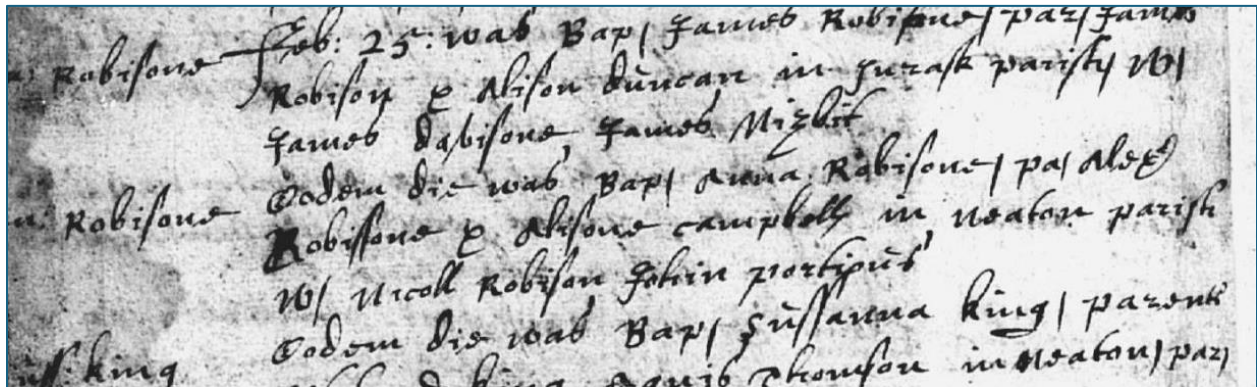 Robisone Feb: 25: was Bap/ James Robisone/ par/ James
Robison & Alison duncan in parish W/
James dabisone, James Nizbit
Robisone Eodem die was Bap/ Anna Robisone/ pa/ Alexr
Robissone & Alisone campbell in Neaton parish
W/ Nicoll Robison John portipus
Eodem die was Bap/ Sussanna king/ parents
king king Agnis thomson in Neaton/ par/